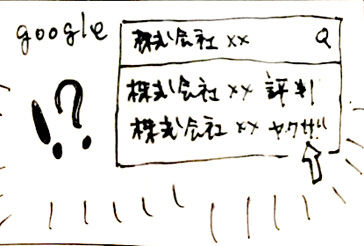 google
株式会社 ×× Q
!?
株式会社 ×× 評判
株式会社 ×× ヤクザ